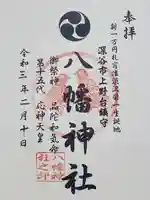 奉拝
新一万円札肖像渋沢栄一生誕地
深谷市上野台鎮守
八幡神社
御祭神 品陀和気命
第十五代 応神天皇
令和三年二月十日
八幡神社之印